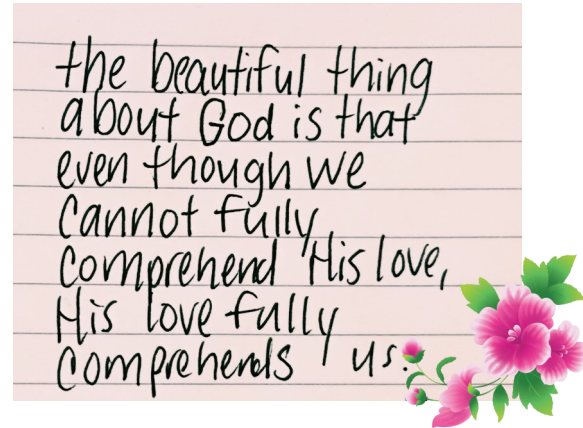 the beautiful thing
about God is that
even though we
cannot fully
comprehend His love,
His love fully
comprehends us.